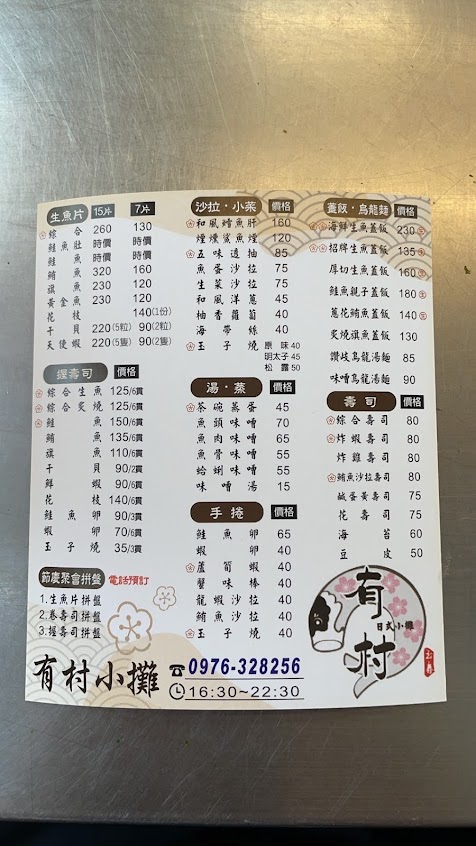 生魚片 15片 7片
綜合 260 130
鮭魚肚 時價 時價
鮭魚 時價 時價
鮪魚 320 160
旗魚 230 120
黃金魚 230 120
花枝 140(1份)
干貝 220(5粒) 90(2粒)
天使蝦 220(5隻) 90(2隻)
握壽司 價格
綜合生魚 125/6貫
綜合炙燒 125/6貫
鮭魚 150/6貫
鮪魚 135/6貫
旗魚 110/6貫
干貝 90/2貫
鮮蝦 90/6貫
花枝 140/6貫
鮭魚卵 90/3貫
蝦卵 70/6貫
玉子燒 35/3貫
節慶聚會拼盤 電話預訂
1.生魚片拼盤
2.卷壽司拼盤
3.握壽司拼盤
沙拉·小菜 價格
和風鱈魚肝 160
煙燻鯊魚煙 120
五味透抽 85
魚蛋沙拉 75
生菜沙拉 75
和風洋蔥 45
柚香蘿蔔 40
海帶絲 40
玉子燒 原味 40
明太子 45
松露 50
湯·蒸 價格
茶碗蒸蛋 45
魚頭味噌 70
魚肉味噌 65
魚骨味噌 55
蛤蜊味噌 55
味噌湯 15
手捲 價格
鮭魚卵 65
蝦卵 40
蘆筍蝦 40
蟹味棒 40
龍蝦沙拉 40
鮪魚沙拉 40
玉子燒 40
蓋飯·烏龍麵 價格
海鮮生魚蓋飯 230
招牌生魚蓋飯 135
厚切生魚蓋飯 160
鮭魚親子蓋飯 180
蔥花鮪魚蓋飯 140
炙燒旗魚蓋飯 130
讚岐烏龍湯麵 85
味噌烏龍湯麵 90
壽司 價格
綜合壽司 80
炸蝦壽司 80
炸雞壽司 80
鮪魚沙拉壽司 80
鹹蛋黃壽司 75
花壽司 75
海苔 60
豆皮 50
有村
日式小攤
有村小攤
0976-328256
16:30~22:30